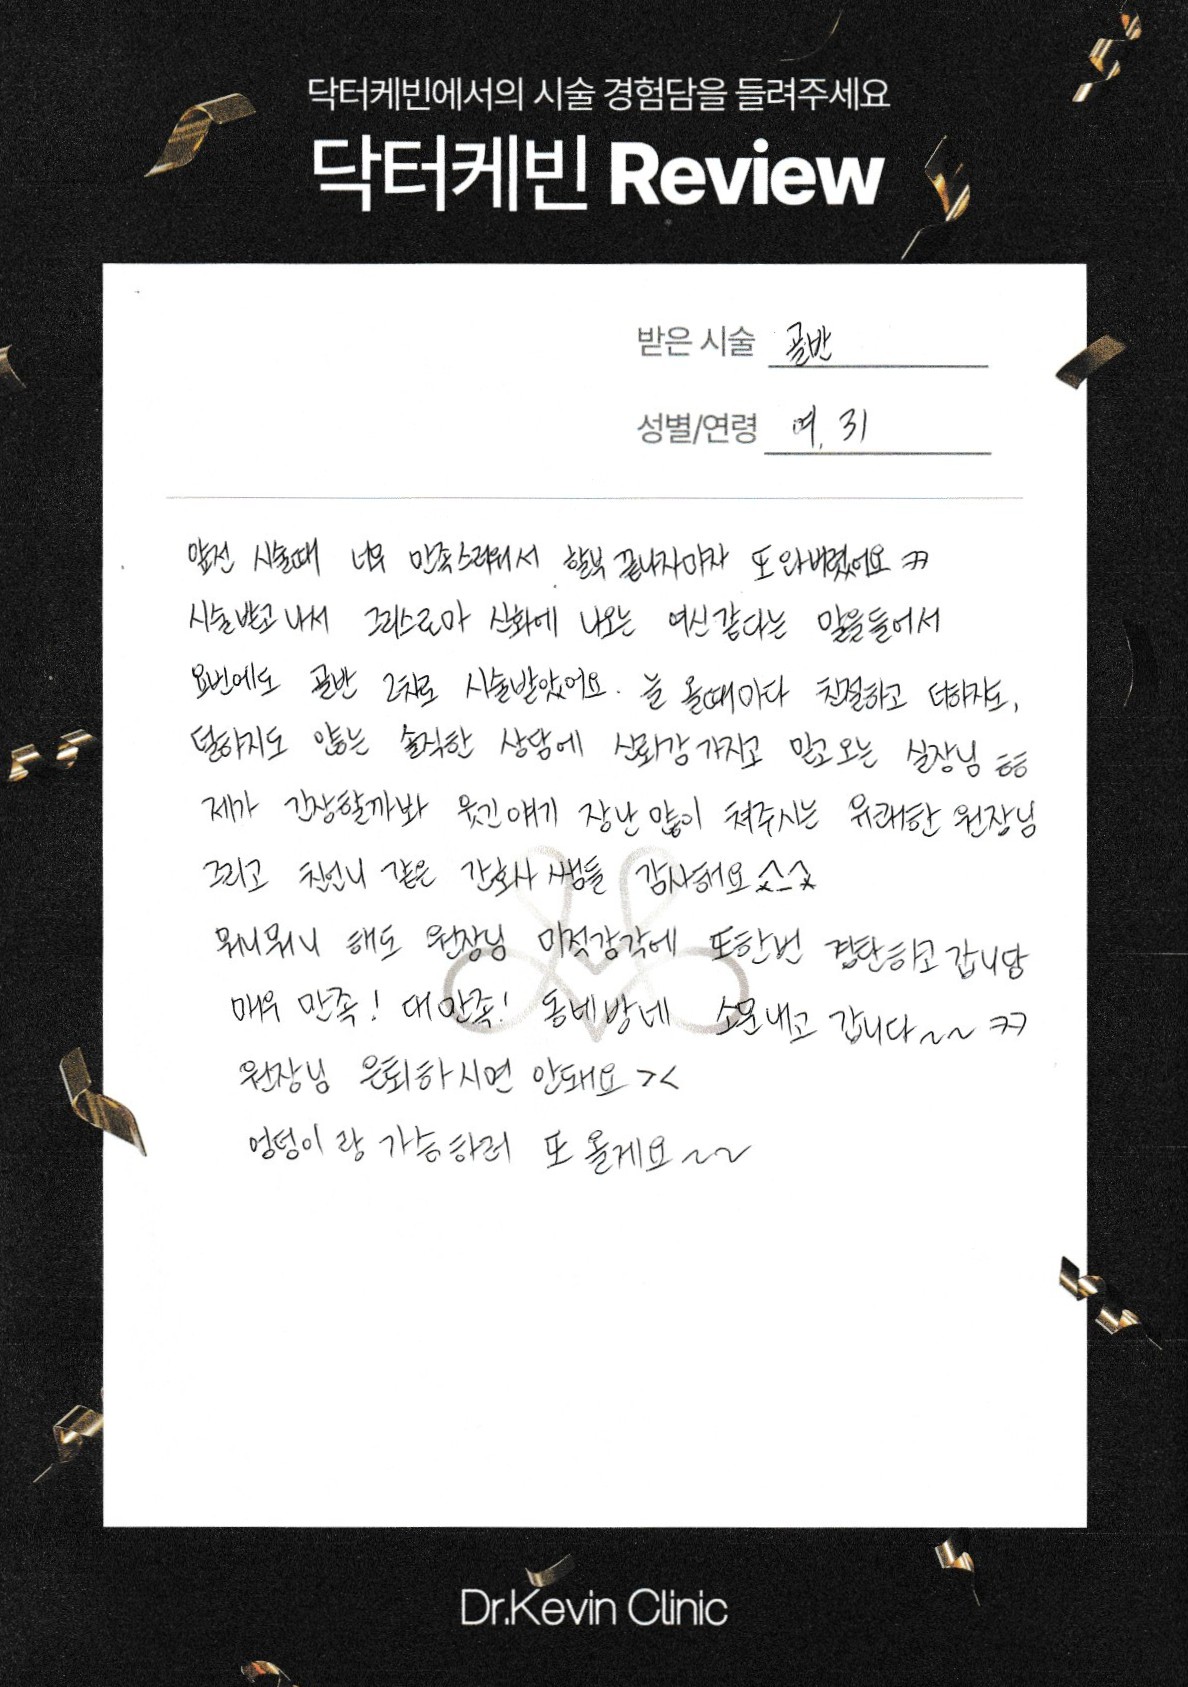 닥터케빈에서의 시술 경험담을 들려주세요
닥터케빈 Review
받은 시술 골반
성별/연령 여, 31
앞전 시술때 너무 만족스러워서 할부 끝나자마자 또 와버렸어요 ㅋㅋ
시술받고 나서 그리스로마 신화에 나오는 여신같다는 말을들어서
요번에도 골반 2차로 시술받았어요. 늘 올때마다 친절하고 더하지도,
덜하지도 않는 솔직한 상담에 신뢰감 가지고 믿고오는 실장님 ㅎㅎ
제가 긴장할까봐 웃긴얘기 장난 많이 쳐주시는 유쾌한 원장님
그리고 친언니 같은 간호사 쌤들 감사해요 ^_^
뭐니뭐니 해도 원장님 미적감각에 또한번 감탄하고 갑니당
매우 만족! 대만족! 동네방네 소문내고 갑니다~~ ㅋㅋ
원장님 은퇴하시면 안돼요 ><
엉덩이랑 가슴하러 또 올게요~~
Dr.Kevin Clinic